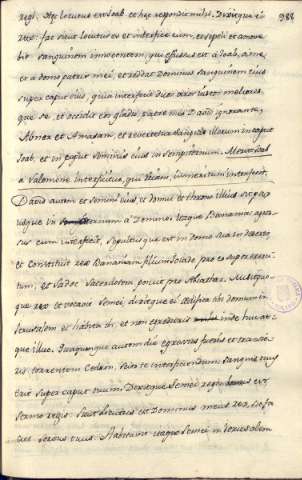 988
regi. Hęc locutus est Ioab, et hęc respondit mihi. Dixitque ei
rex: fac sicut locutus est et interfice eum, et sepeli et amove
bis sanguinem innocentem, qui effusus est à Ioab, à me,
et a domo patris mei, et reddat Dominus sanguinem eius
super caput eius, quia interfecit duos viros iustos meliores
que se, et occidit eos gladio, patre meo David ignorante,
Abner et Amasam, et revertetur sanguis illorum in caput
Ioab, et in caput seminis eius in sempiternum. 
à Salomone
David autem et semini eius, et domui et throno illius sit pax
usque in ęternum à Domino. Itaque Banaias
sus eum interfecit, sepultusque est in domo sua in deserto
et Constituit rex Banaiam filium Ioiadę pro eo super exerci
tum, et Sadoc Sacerdotem posuit pro Abiathar. Misit quo
que rex et vocavit Semei, dixitque ei ędifica tibi domum in
Ierusalem et habita ibi, et non egredieris inde huc at
que illuc. Quacunque autem die egressus fueris et transie
ris torrentem Cedron, scito te interficiendum sanguis tuus
erit super caput tuum. Dixitque Semei regi bonus est
sermo regis. Sicut locutus est Dominus meus rex, sic fa
ciet servus tuus. Habitavit itaque Semei in Ierusalem